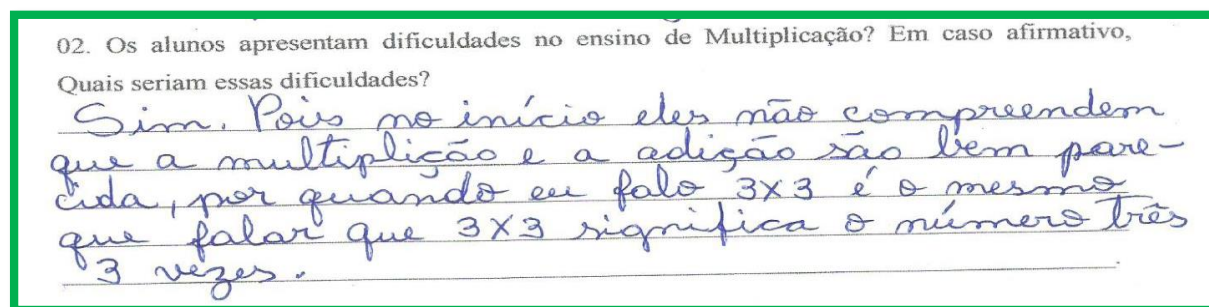 02. Os alunos apresentam dificuldades no ensino de Multiplicação? Em caso afirmativo,
Quais seriam essas dificuldades?
Sim. Pois no início eles não compreendem
que a multiplição e a adição são bem pare-
cida, por quando eu falo 3x3 é o mesmo
que falar que 3x3 significa o número três
3 vezes.